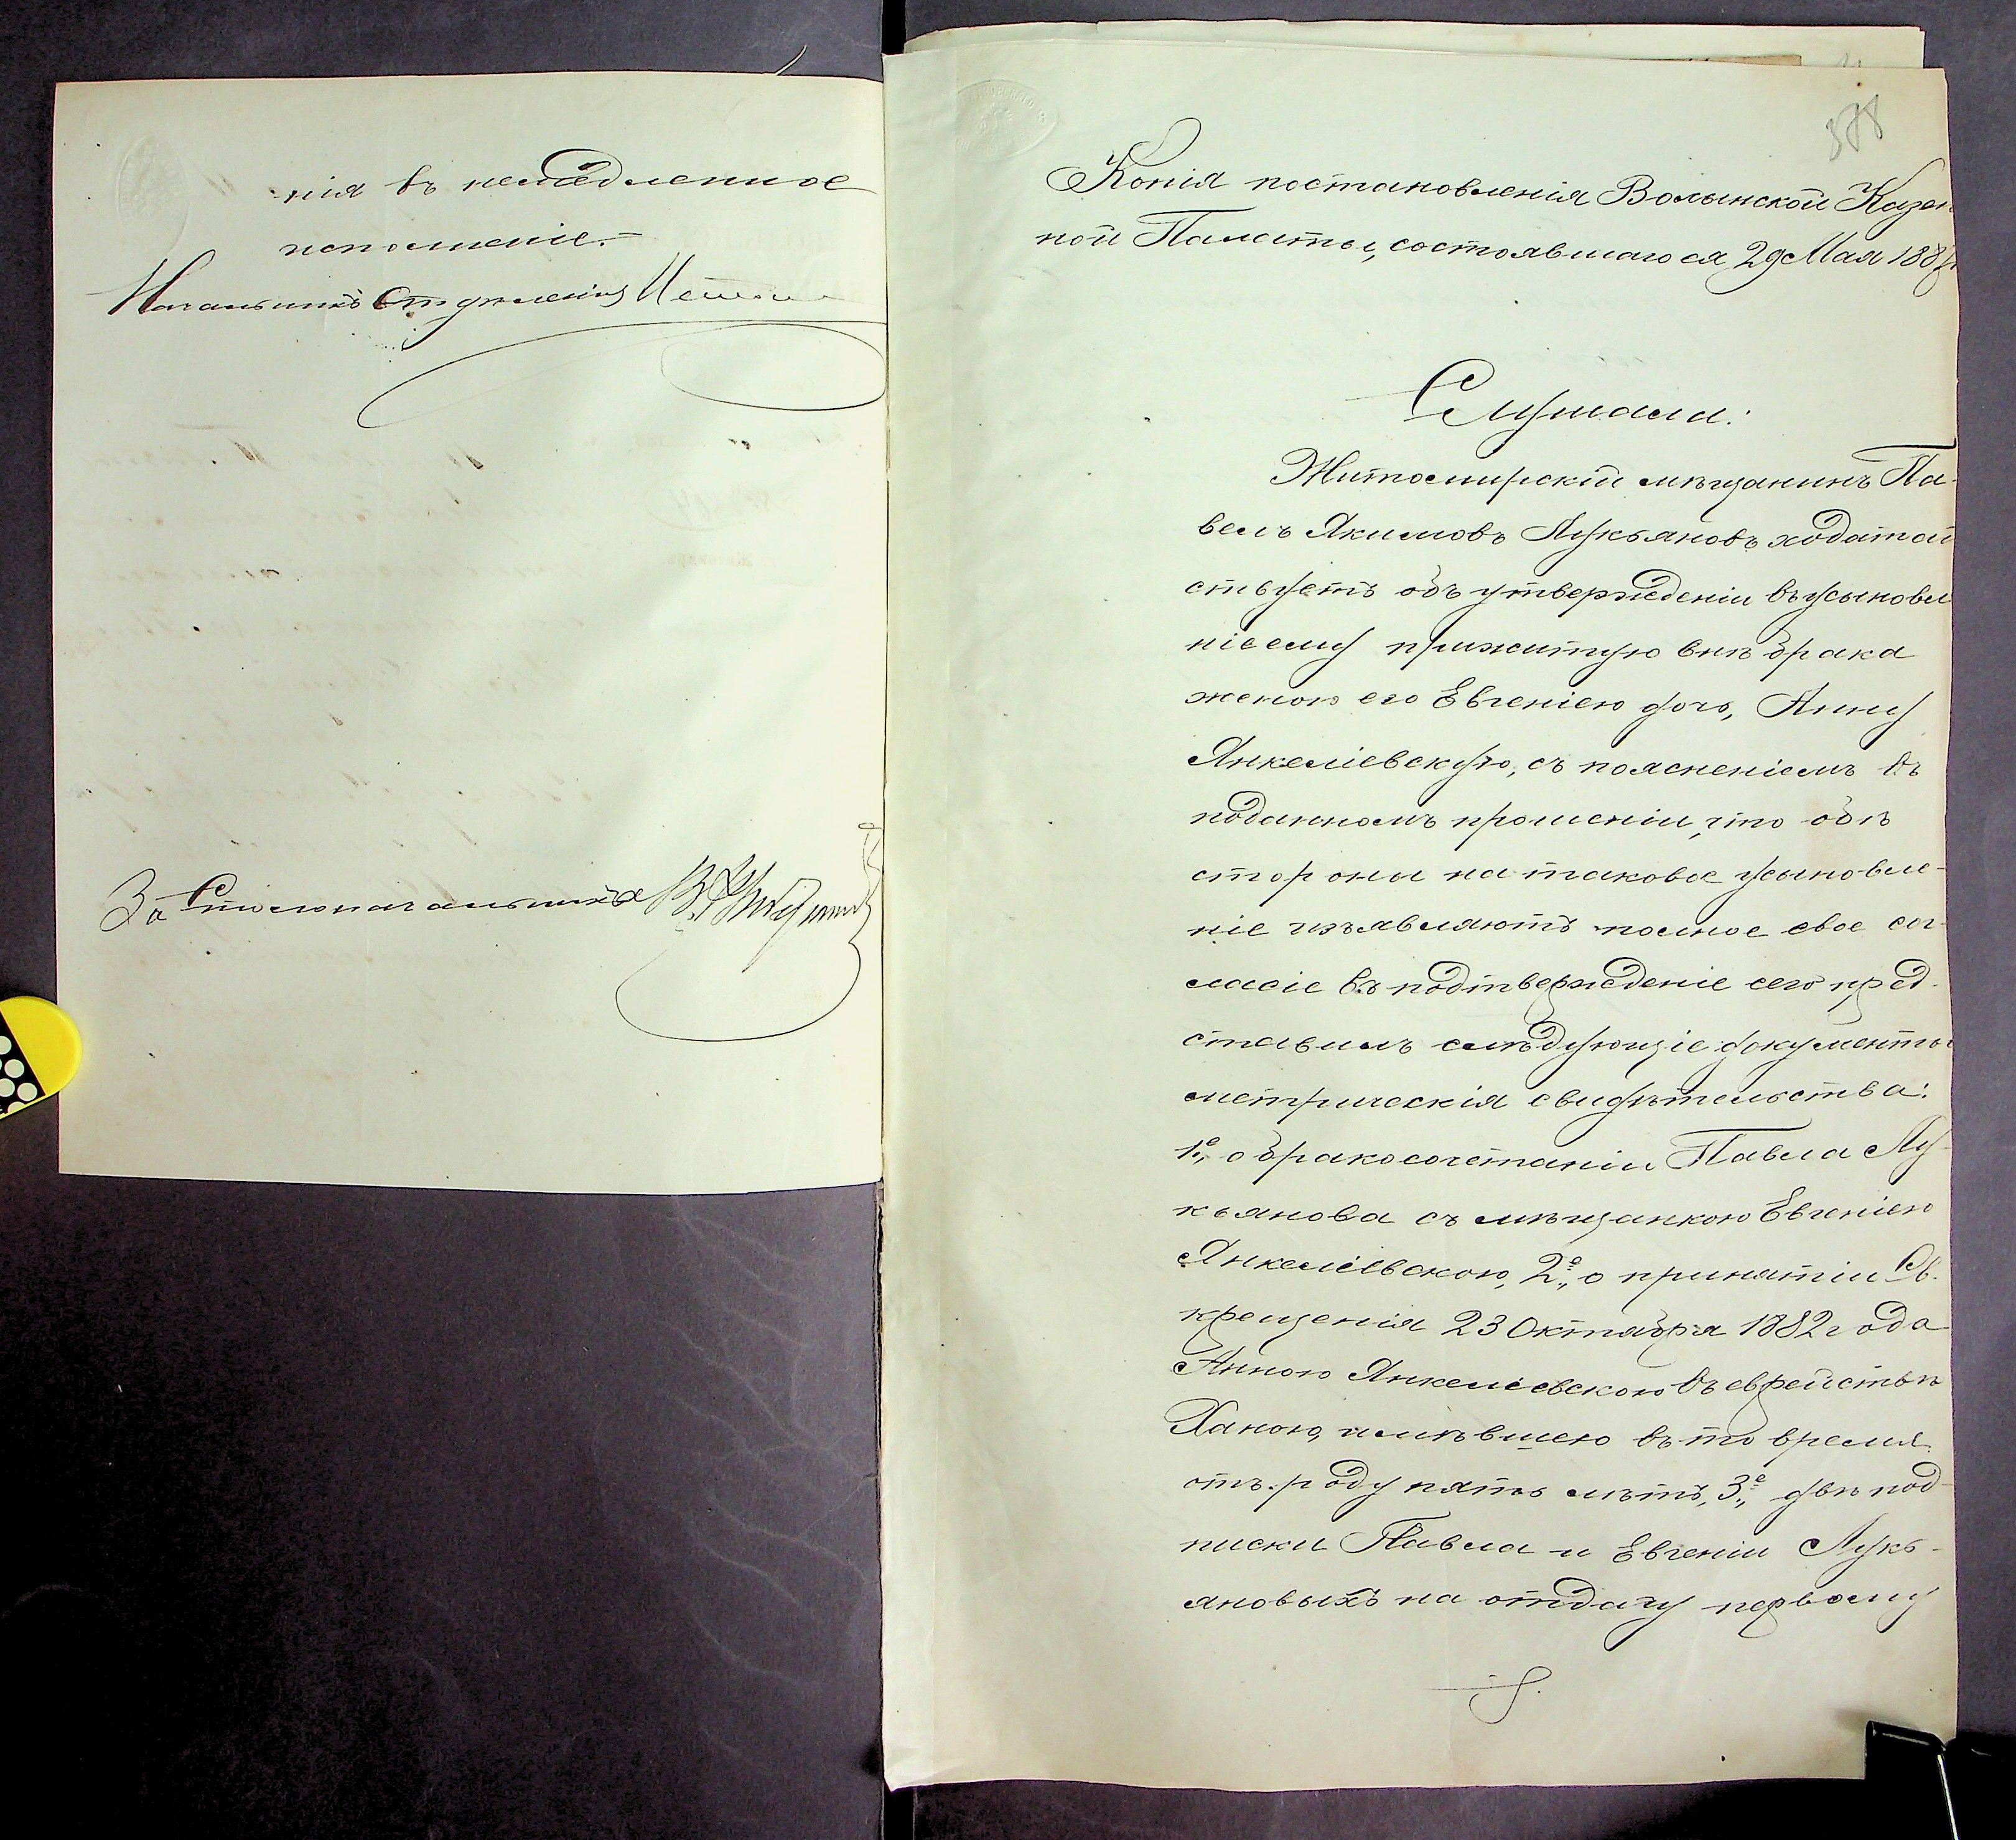 нія въ немедленное
исполненіе.
Начальникъ Отдѣленія
За Столоначальника
378
Копія постановленія Волынской Казен
ной Палаты, состоявшагося 29 Мая 188
Слушали:
Житомирскій мѣщанинъ Па-
велъ Якимовъ Лукьяновъ ходатай
ствуетъ объ утвержденіи въ усыновле
ніе ему прижитую внѣ брака
женою его Евгеніею дочь, Анну
Янкеліевскую, съ поясненіемъ въ
поданномъ прошеніи, что обѣ
стороны на таковое усыновле-
ніе изъявляютъ полное свое сог-
ласіе въ подтвержденіе сего пред-
ставилъ слѣдующіе документы
метрическія свидѣтельства:
1е, о бракосочетаніи Павла Лу-
кьянова съ мѣщанкою Евгеніею
Янкеліевскою, 2е, о принятіи Св.
крещенія 23 Октября 1882 года
Анною Янкеліевскою въ еврействѣ
Ханою, имѣвшею въ то время
отъ роду пять лѣтъ, 3е, двѣ под-
писки Павла и Евгеніи Лукь-
яновыхъ на отдачу первому